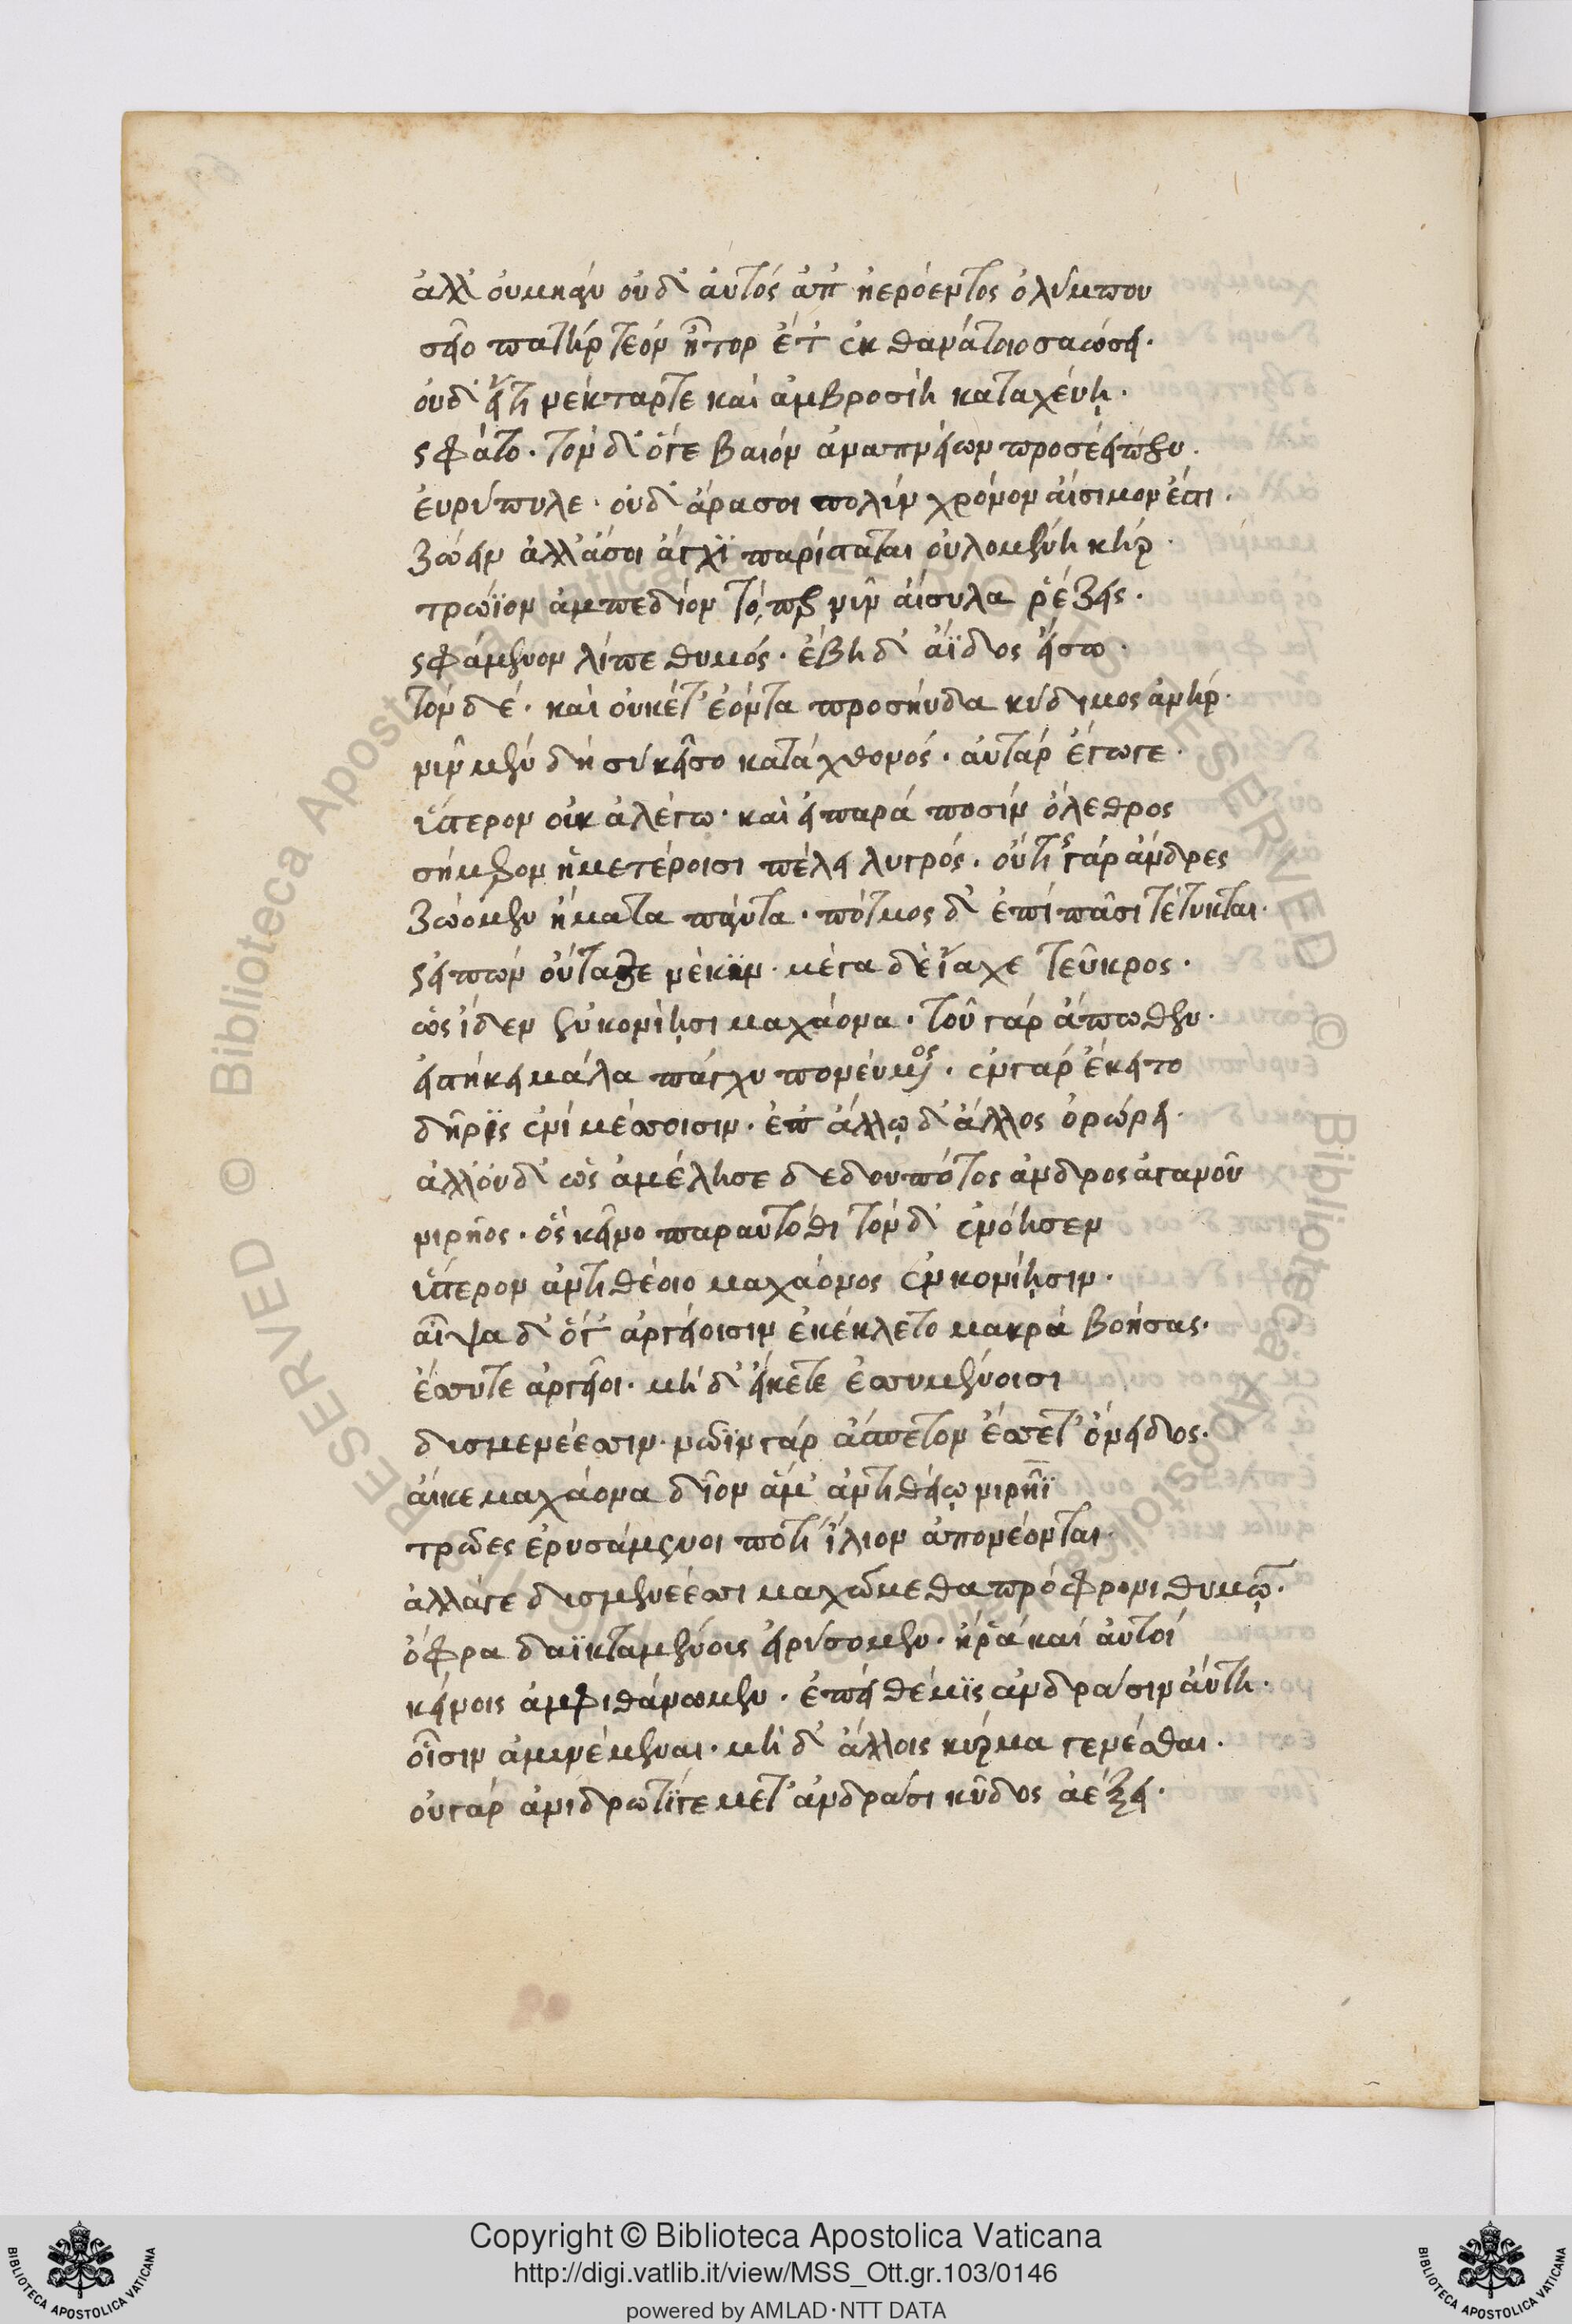 ἀλλ' ὀυμηάν οὐδ' ἀυτός ἀπ' ἠερόεντος ὀλύμπου
σεῖο πατήρ τεόν ἦτορ ἔτ' ἐκ θανάτοιο σαώσει.
οὐδ' εἴτι νέκταρτε καὶ ἀμβροσίη καταχέυῃ.
ς φάτο. τόν δ' ὅγε βαιόν ἀναπνείων προσέειπεν.
ἐυρύπυλε. οὐδ' ἄρασοι πολύν χρόνον ἄισιμον ἐστι.
ζώειν ἀλλ' ἄσοι ἄγχϊ παρίσταται ὀυλομένη κήρ.
τρώϊον ἀμπεδίον τόπερ νῦν ἄισυλα ῥέζεις.
ς φάμενον λίπε θυμός. ἔβη δ' ἄϊδος εἴσω.
τόν δέ. καὶ ὀυκέτ' ἐόντα προσηύδα κύδιμος ἀνήρ.
νῦν μέν δή σύ κεῖσο κατά χθονός. ἀυτάρ ἔγωγε.
ὕστερον οὐκ ἀλέγω. καὶ εἰ παρά ποσίν ὄλεθρος
σήμερον ἡμετέροισι πέλει λυγρός. ὄυτι γάρ ἄνδρες
ζώομεν ἤματα πάντα. πότμος δ' ἐπί πᾶσι τέτυκται.
ς εἰπών ὄυταζε νέκϋν. μέγα δὲ ἴαχε τεῦκρος.
ὡς ἴδεν ἐν κονίῃσι μαχάονα. τοῦ γάρ ἄπωθεν.
εἱστήκει μάλα πάγχυ πονεύμενος. ἐν γάρ ἔκειτο
δῆρϊς ἐνί μέσσοισιν. ἐπ' ἄλλῳ δ' ἄλλος ὀρώρει.
ἀλλ' ὀυδ' ὡς ἀμέλησε δεδουπότος ἀνδρος ἀγανοῦ
νιρῆος. ὅς κεῖνο παραυτόθι τόν δ' ἐνόησεν
ὕστερον ἀντιθέοιο μαχάονος ἐν κονίῃσιν.
αἶψα δ' ὅγ' ἀργείοισιν ἐκέκλετο μακρά βοήσας.
ἔσσυτε ἀργεῖοι. μή δ' εἴκετε ἐσσυμένοισι
δυσμενέεσσιν. νῶϊν γάρ ἄσπετον ἔσσετ' ὄνειδος.
ἄικε μαχάονα δῖον ἅμ' ἀντιθείῳ νιρῆϊ
τρῶες ἐρυσάμενοι ποτί ἴλιον ἀπονέονται.
ἀλλάγε δυσμενέεσσι μαχώμεθα πρόφρονι θυμῷ.
ὄφρα δαϊκταμένοις εἰρύσομεν. ἠρἁ καί ἀυτοί
κείνοις ἀμφιθάνωμεν. ἐπεί θέμϊς ἀνδράσιν ἄυτη.
οἷσιν ἀμυνέμεναι. μή δ' ἄλλοις κύρμα γενέσθαι.
ὀυγάρ ἀνιδρωτίγε μετ' ἀνδράσι κῦδος ἀέξει.
Copyright © Biblioteca Apostolica Vaticana
http://digi.vatlib.it/view/MSS_Ott.gr.103/0146
powered by AMLAD·NTT DATA